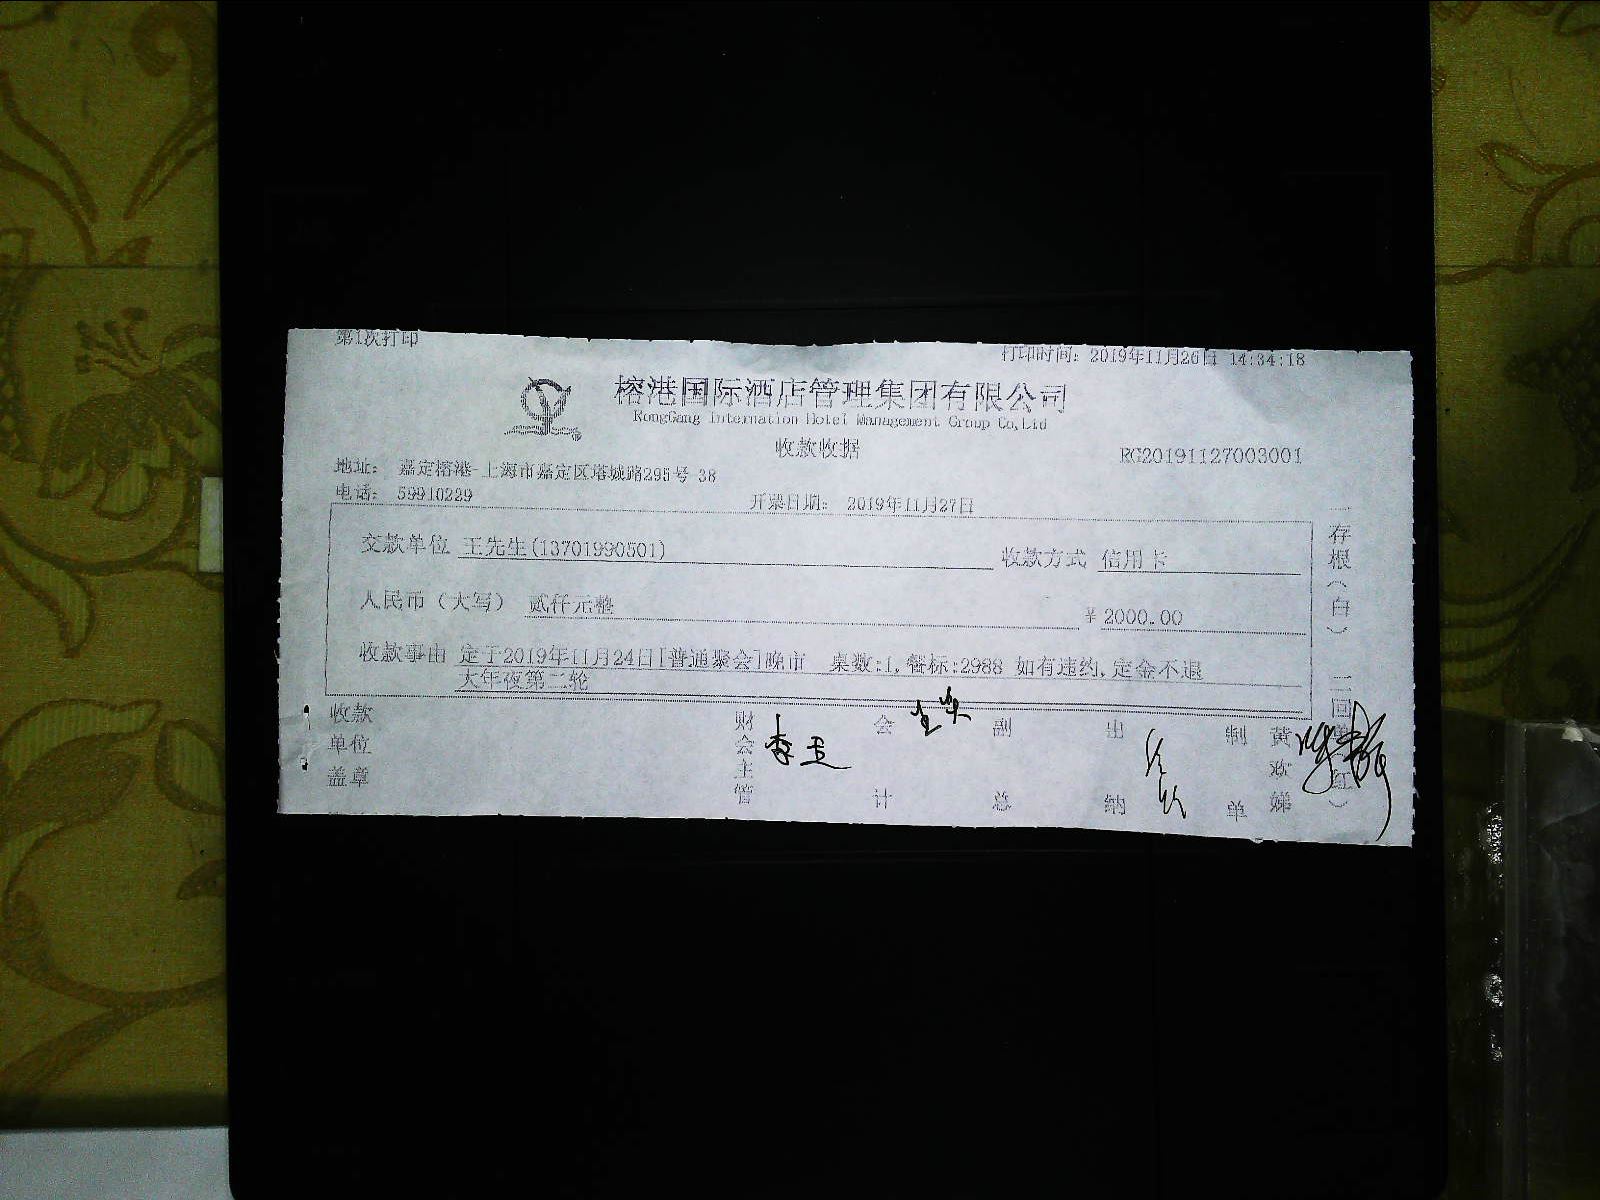 第1次打印
打印时间: 2019年11月26日 14:34:18
榕港国际酒店管理集团有限公司
RongGang Internation Hotel Management Group Co,Ltd
收款收据
RG20191127003001
地址: 嘉定榕港-上海市嘉定区塔城路295号 38
电话: 59910229
开票日期: 2019年11月27日
交款单位 王先生(13701990501) 收款方式 信用卡
人民币（大写） 贰仟元整 ¥ 2000.00
收款事由 定于2019年11月24日[普通聚会]晚市 桌数:1,餐标:2988 如有违约,定金不退
大年夜第二轮
收款单位盖章 财会主管 会计 副总 出纳 制单 黄欢娣
一存根(白) 二回单(红)